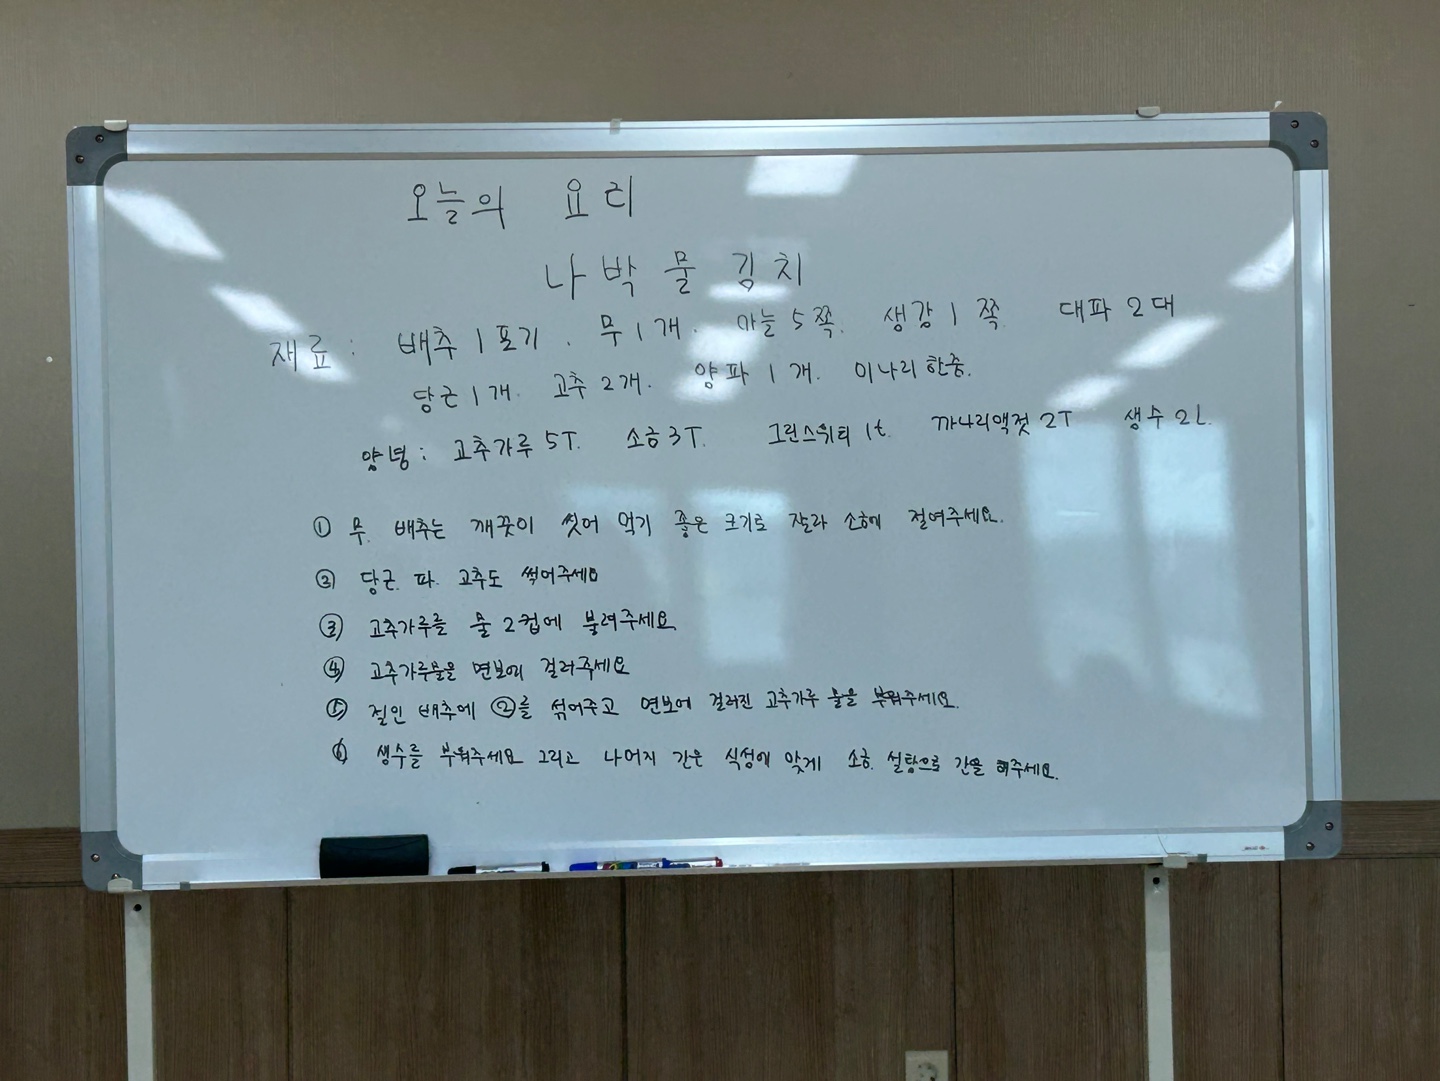 오늘의 요리
나박 물 김치
재료 : 배추 1 포기. 무 1 개. 마늘 5 쪽. 생강 1 쪽 대파 2 대
당근 1 개. 고추 2 개. 양파 1 개. 미나리 한줌.
양념 : 고추가루 5T. 소금 3T. 그린스위티 1t. 까나리액젓 2T 생수 2L.
① 무. 배추는 깨끗이 씻어 먹기 좋은 크기로 잘라 소금에 절여주세요.
② 당근. 파. 고추도 썩어주세요
③ 고추가루를 물 2컵에 불려주세요
④ 고추가루물을 면보에 걸러주세요
⑤ 절인 배추에 ②를 섞어주고 면보에 걸러진 고추가루 물을 부워주세요.
⑥ 생수를 부워주세요 그리고 나머지 간은 식성에 맞게 소금. 설탕으로 간을 해주세요.